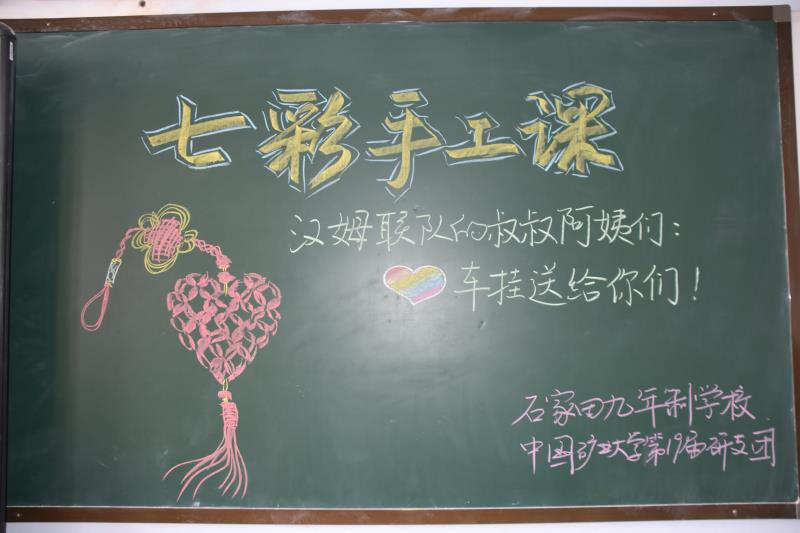 七彩手工课
汉姆联队的叔叔阿姨们：
车挂送给你们！
石家田九年制学校
中国矿业大学第19届研支团